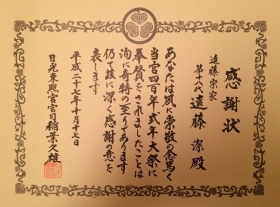 感謝状
遠藤宗家
第十八代 遠藤潔殿
あなたは夙に崇敬の念篤く
当宮四百年式年大祭に
奉賛をされましたことは
洵に奇特の至りであります
仍て茲に深く感謝の意を
表します
平成二十七年十月十七日
日光東照宮宮司稲葉久雄